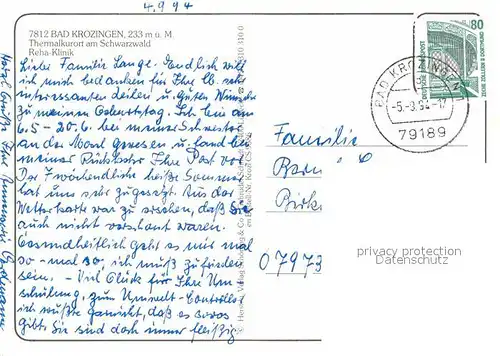 4.9.94
7812 BAD KROZINGEN, 233 m ü. M.
Thermalkurort am Schwarzwald
Reha-Klinik
Liebe Familie Lange. Endlich will
ich mich bedanken für Ihre lb. sehr
interessanten Zeilen u. guten Wünsche
zu meinem Geburtstag. Ich bin am
6.5 - 20.6. bei meiner Schwester
an der Mosel gewesen u. fand bei
meiner Rückkehr Ihre Post vor.
Der 7wöchentliche heiße Sommer
hat uns sehr zugesetzt. Aus der
Wetterkarte war zu ersehen, daß Sie
auch nicht verschont waren.
Gesundheitlich geht es mir mal
so - mal so, ich muß zufrieden
sein. - Viel Glück für Ihre Um-
schulung, zum Umwelt-Controller
ich wüßte garnicht, daß es sowas
gibt. Sie sind doch immer fleißig
Herzl. Grüße Ihre
80
DEUTSCHE BUNDESPOST
ZECHE ZOLLERN II DORTMUND
BAD KROZINGEN
-5.-9.94-17
79189
Familie
Bern
Birk
07973
privacy protection
Datenschutz